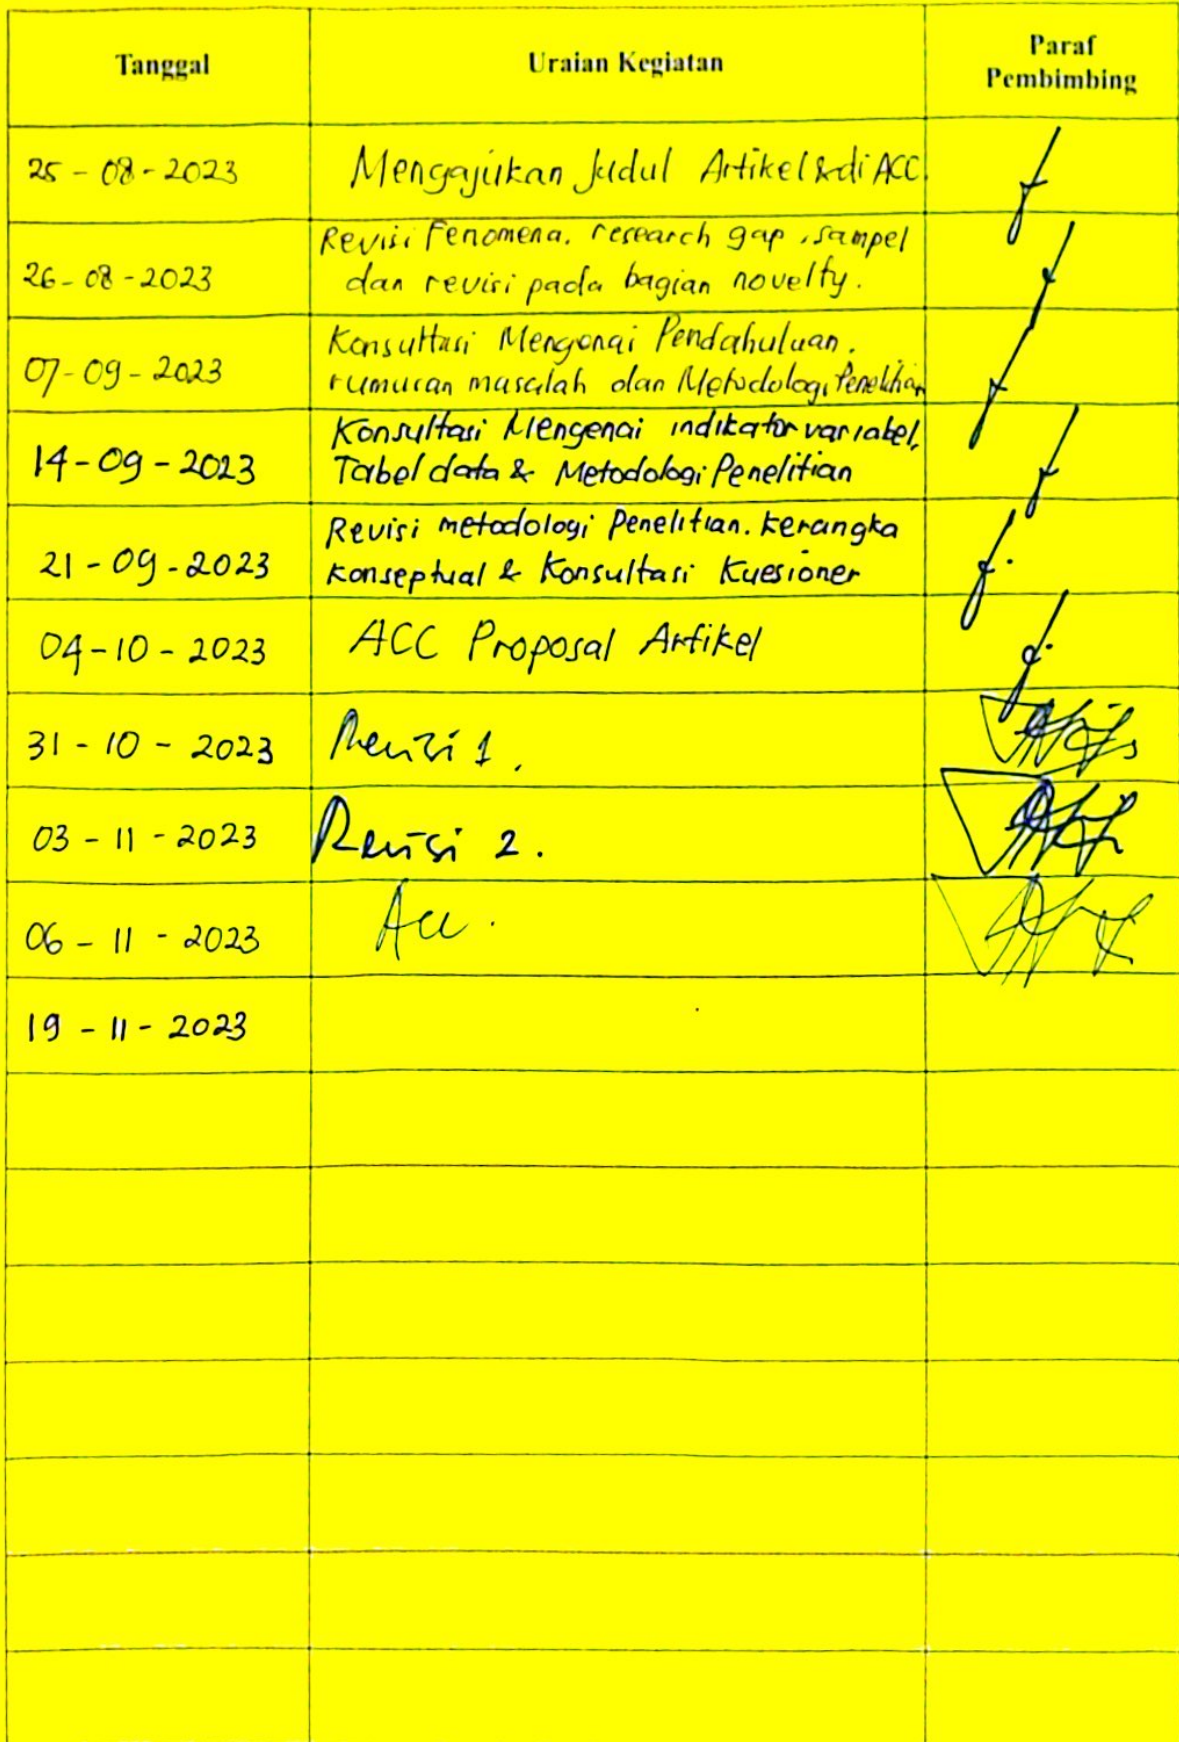 Tanggal
Uraian Kegiatan
Paraf
Pembimbing
25 - 08 - 2023
Mengajukan Judul Artikel & di ACC.
26 - 08 - 2023
Revisi Fenomena. research gap, sampel
dan revisi pada bagian novelty.
07 - 09 - 2023
Konsultasi Mengenai Pendahuluan.
rumusan masalah dan Metodologi Penelitian
14 - 09 - 2023
Konsultasi Mengenai indikator variabel,
Tabel data & Metodologi Penelitian
21 - 09 - 2023
Revisi metodologi Penelitian. Kerangka
Konseptual & Konsultasi Kuesioner
04 - 10 - 2023
ACC Proposal Artikel
31 - 10 - 2023
Revisi 1.
03 - 11 - 2023
Revisi 2.
06 - 11 - 2023
Acc.
19 - 11 - 2023